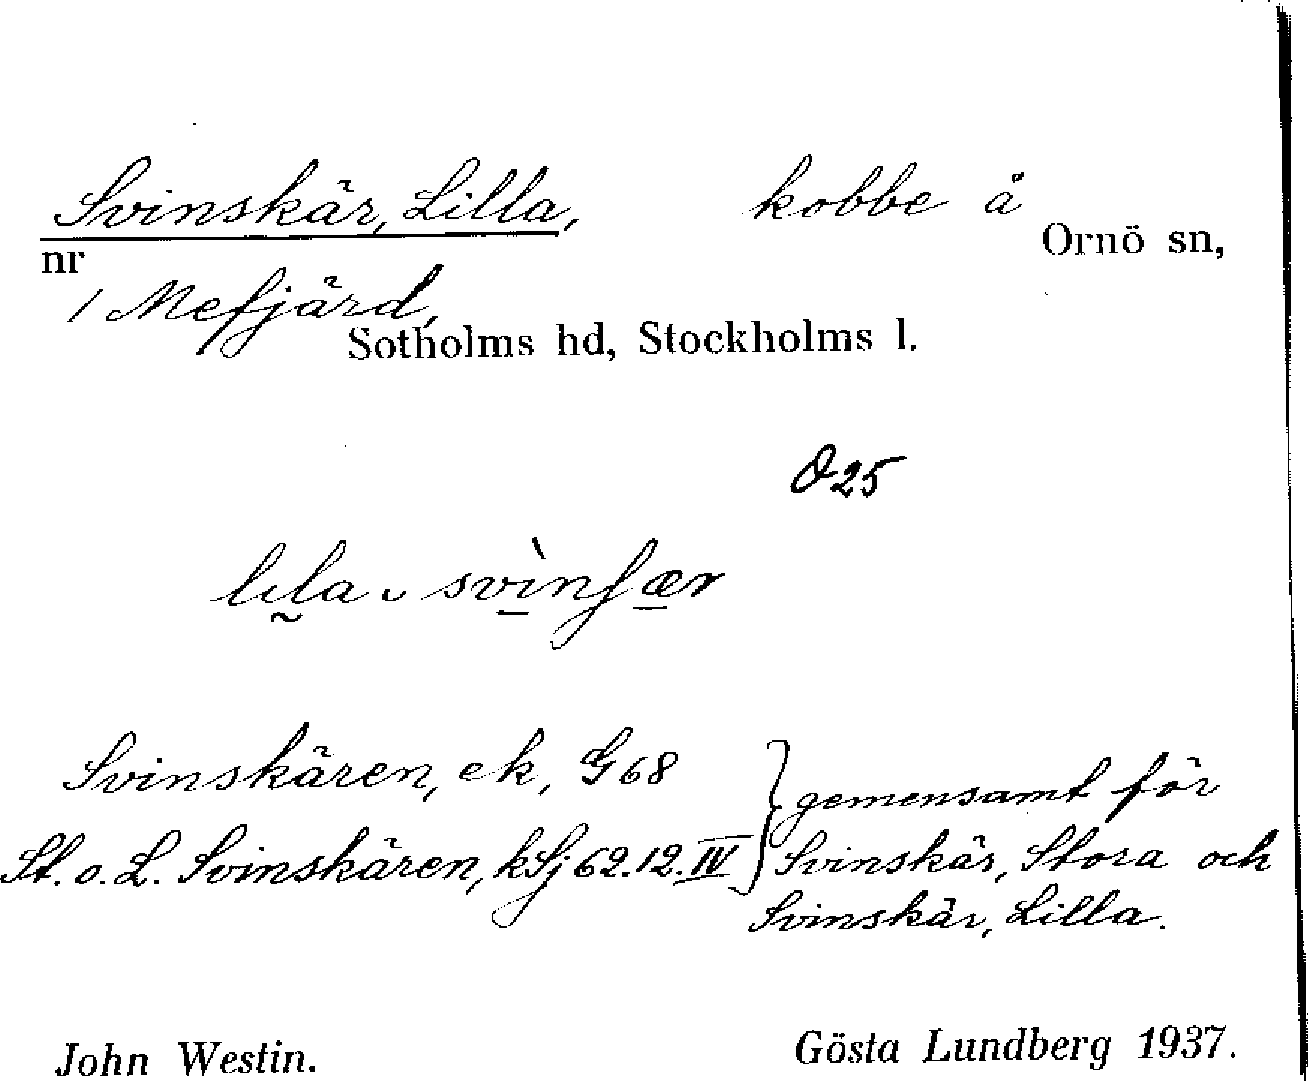 Svinskär, Lilla, kobbe å Ornö sn,
nr
1 Mefjärd, Sotholms hd, Stockholms l.
O25
lıla ˬ svìnʃær
Svinskären, ek, G68
St. o. L. Svinskären, kSj 62.12.IV
} gemensamt för
Svinskär, Stora och
Svinskär, Lilla.
John Westin. Gösta Lundberg 1937.